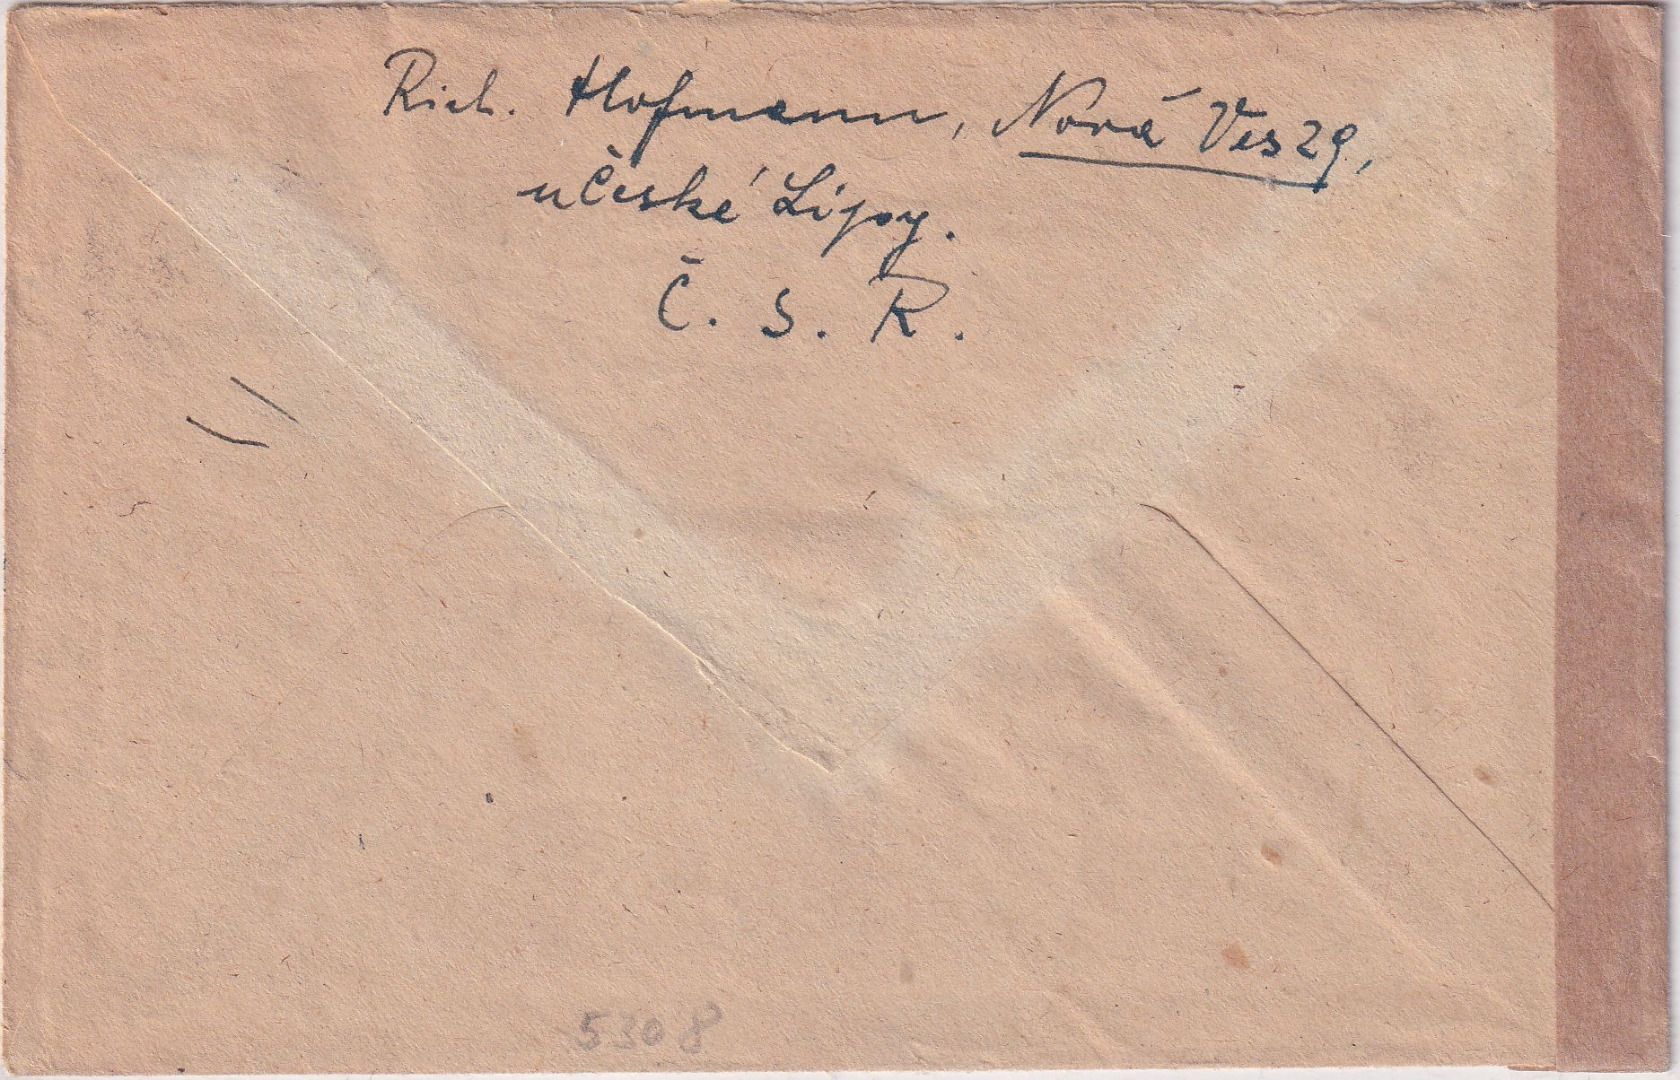 Rich. Hofmann, Nová Ves 29,
u České Lípy.
Č. S. R.
5308